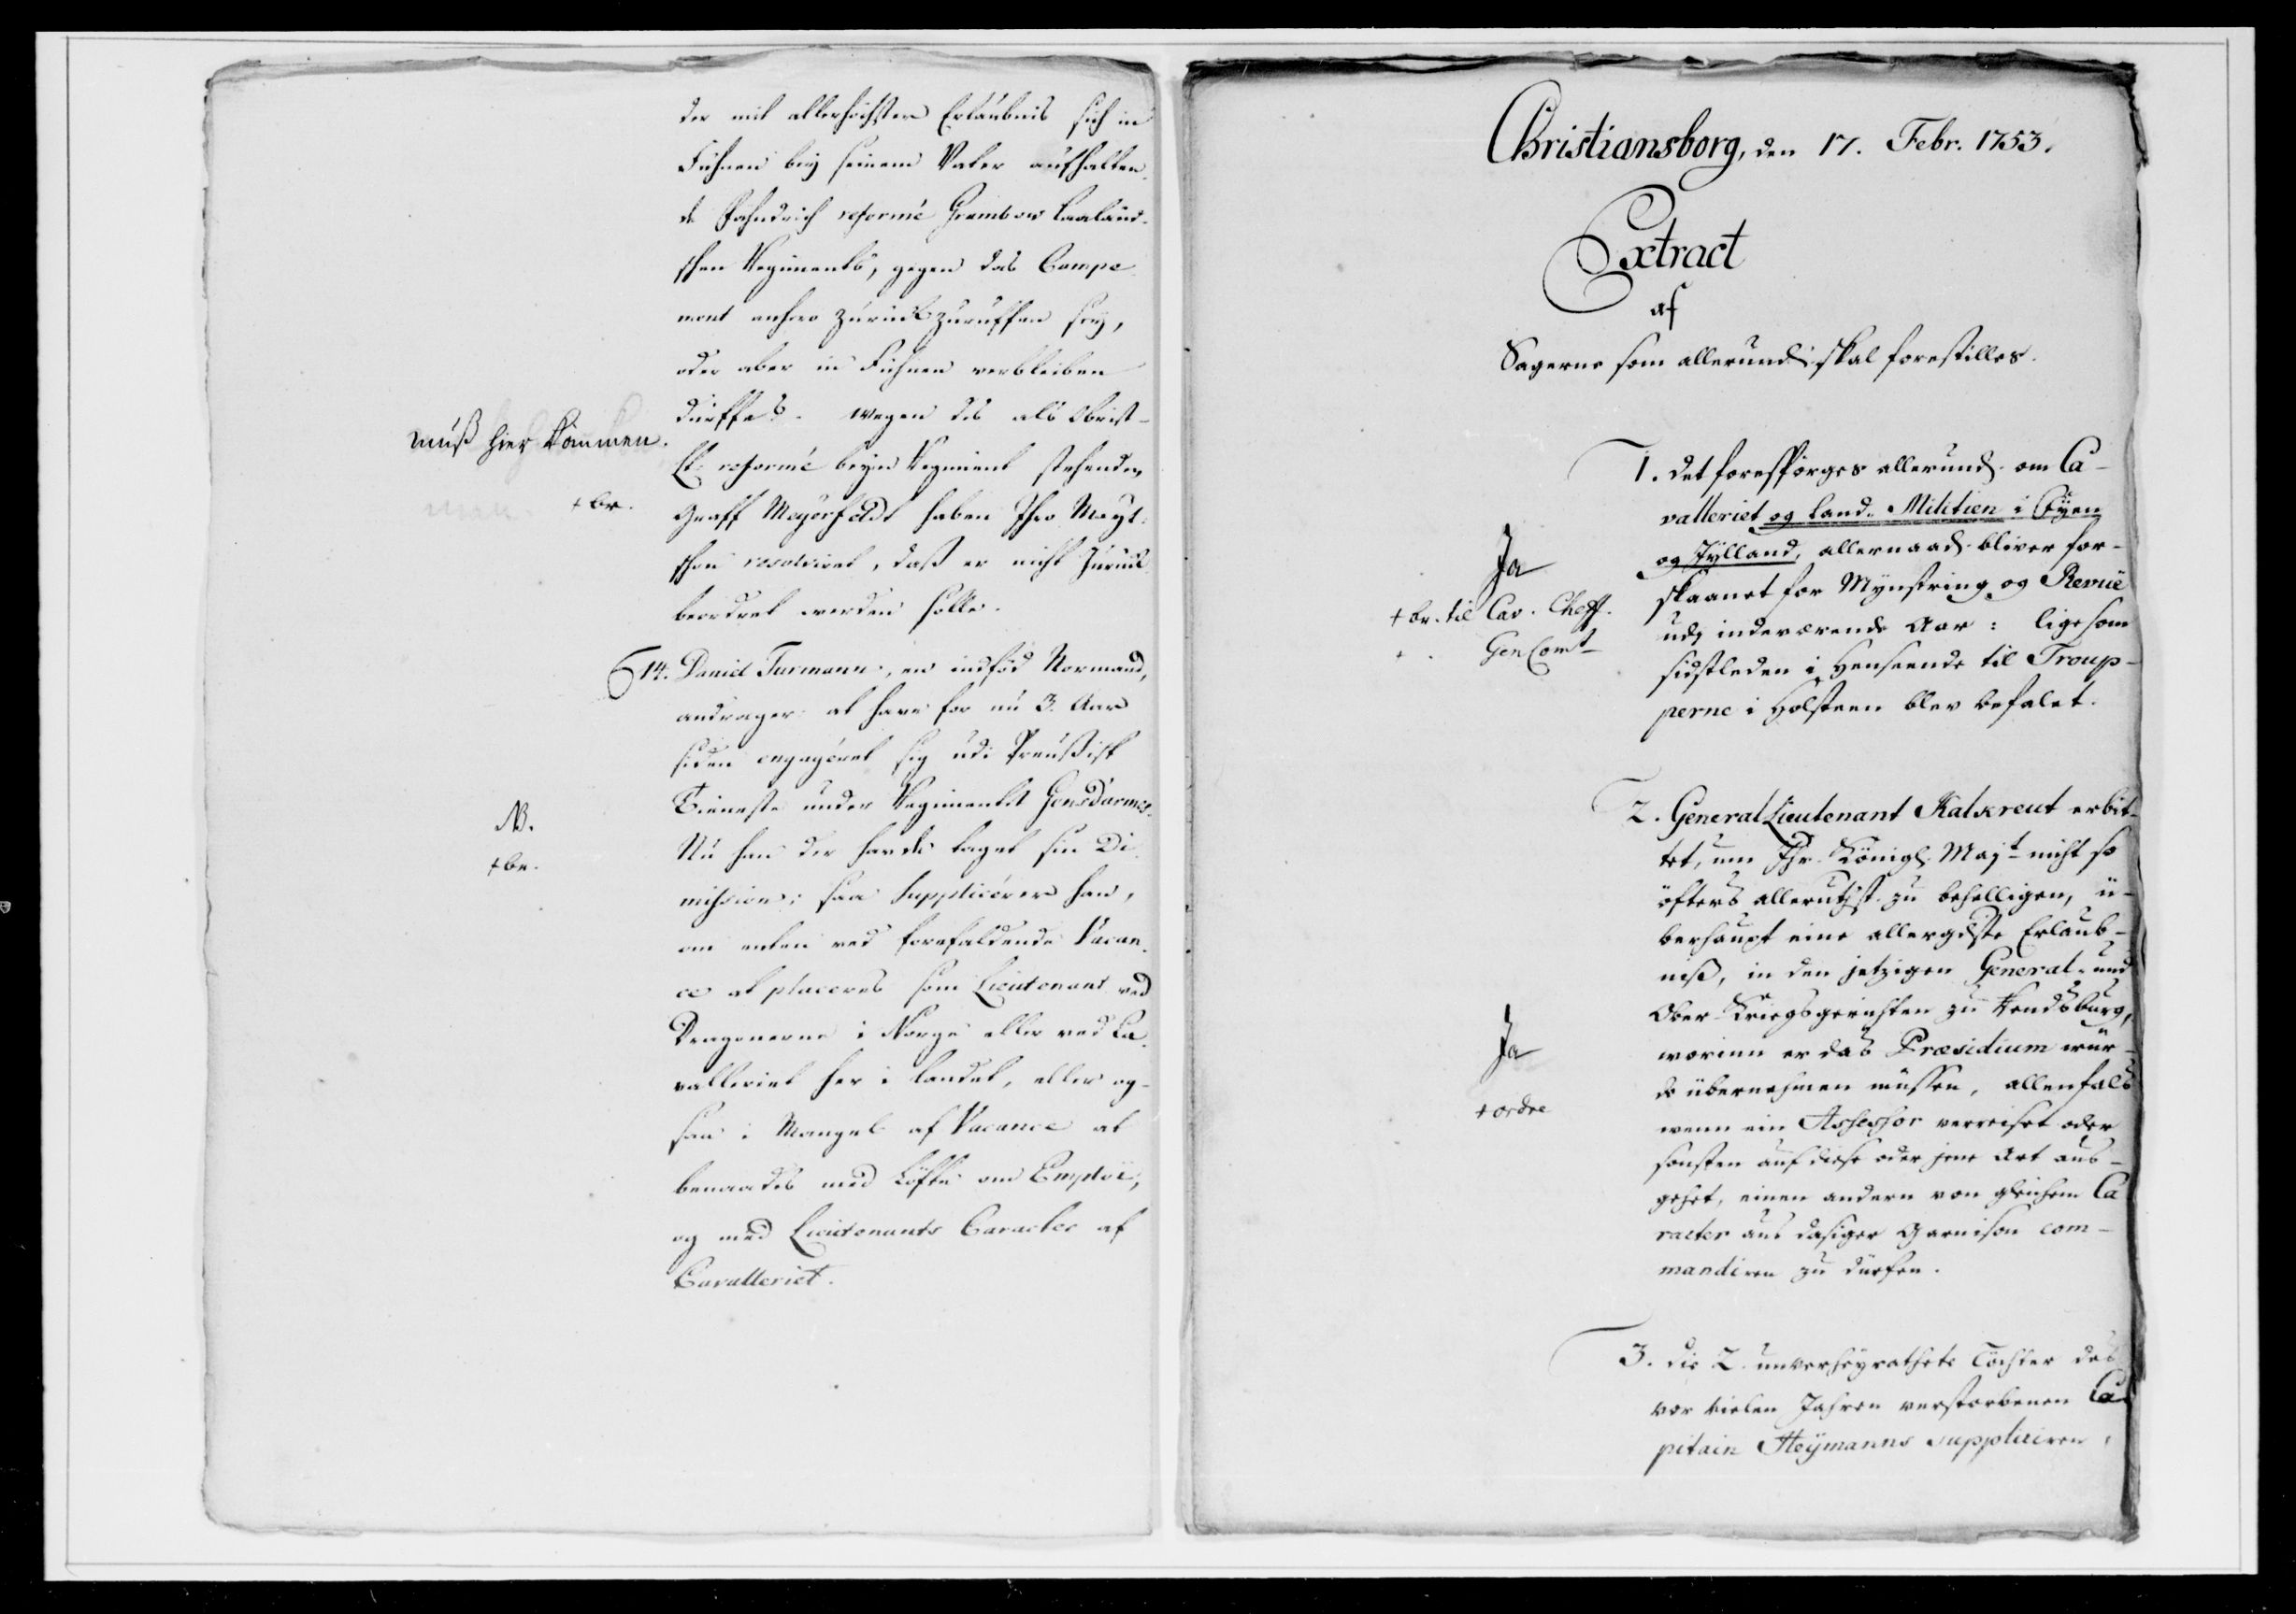 der mit allerhöchster Erlaubnis sich in
Fühnen beÿ seinem Vater aufhalten¬
de Fahndrich reformé Grambow Laaland¬
schen Regiments, gegen das Campe¬
ment anhero zurückzuruffen seÿ,
oder aber in Fühnen verbleiben
dürffe? wegen des als Obrist-
Lt. reformé beym Regiment stehenden
Graff Meyerfeldt haben Ihro Mayt.
schon resolviret, daß er nicht zurück
beordret werden solle.
muß hier kommen.
+ br.
14. Daniel Turmann, en indfød Normand,
andrager at have for nu 3. Aar
siden engagéret sig udi Preußisk
Tieneste under Regimentet Gensd'armes.
Nu han der havde taget sin Di¬
mission; saa Supplicérer han,
om enten ved forefaldende Vacan¬
ce at placeres som Lieutenant ved
Dragonerne i Norge eller ved Ca¬
valleriet her i Landet, eller og-
saa i Mangel af Vacance at
benaades med Løfte om Emploi,
og med Lieutenants Caracter af
Cavalleriet.
NB.
+ br.
Christiansborg, den 17. Febr. 1753.
Extract
af
Sagerne som allerund. skal forestilles.
1. Det forespørges allerund. om Ca-
valleriet og Land-Militien i Fÿen
og Jÿlland, allernaad. bliver for-
skaanet for Mynstring og Revüe
udj indeværende Aar: ligesom
sidstleden i Henseende til Troup-
perne i Holsteen blev befalet.
Ja
+ br. til Cav. Cheff.
GenComt
2. General Lieutenant Kalkreut erbit-
tet, um Ihr Königl. Majt nicht so
öfters alleruthst. zu behelligen, ü-
berhaupt eine allergdste Erlaub-
niß, in den jetzigen General- und
Ober-Kriegsgerichten zu Rendsburg,
worinn er das Præsidium wür-
de übernehmen müssen, allenfals
wenn ein Assessor verreiset oder
sonsten auf diese oder jene Art aus-
gehet, einen andern von gleichem Ca
racter aus dasiger Garnison com-
mandiren zu dürfen.
Ja
+ ordre
3. Die 2. unverheyrathete Töchter des
vor vielen Jahren verstorbenen Ca-
pitain Heÿmanns suppliciren,